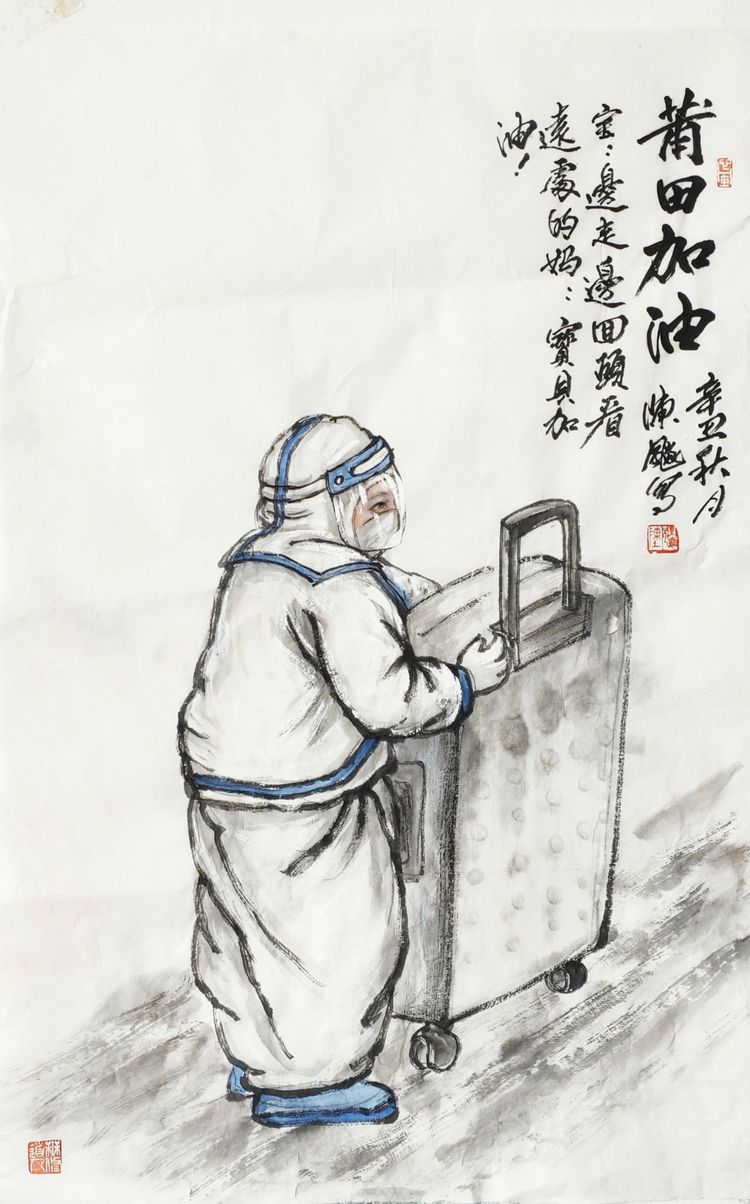 莆田加油
辛丑秋月
陳 寫
宝：邊走邊回頭看
遠處的妈：寶貝加
油！